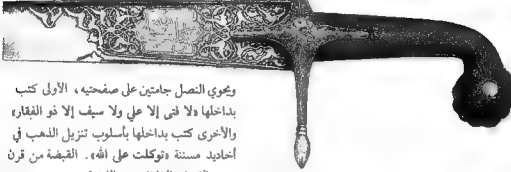 ويحوي النصل جامتين على صفحتيه، الأولى كتب
بداخلها «لا فتى إلا علي ولا سيف إلا ذو الفقار»
والأخرى كتب بداخلها بأسلوب تنزيل الذهب في
أخاديد مسننة «توكلت على الله». القبضة من قرن